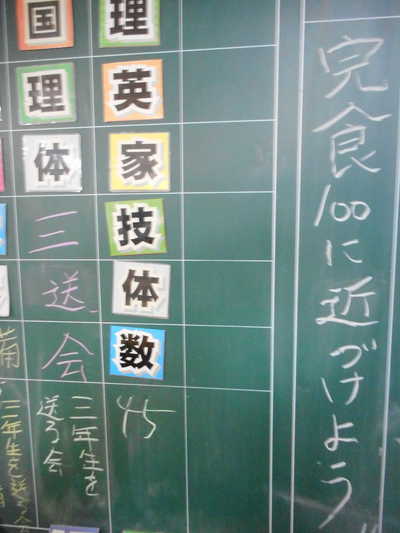 完食100に近づけよう
理
英
家
技
体
数
45
国
理
体
三
送
会
三年生を
送る会
備
三年生を送る